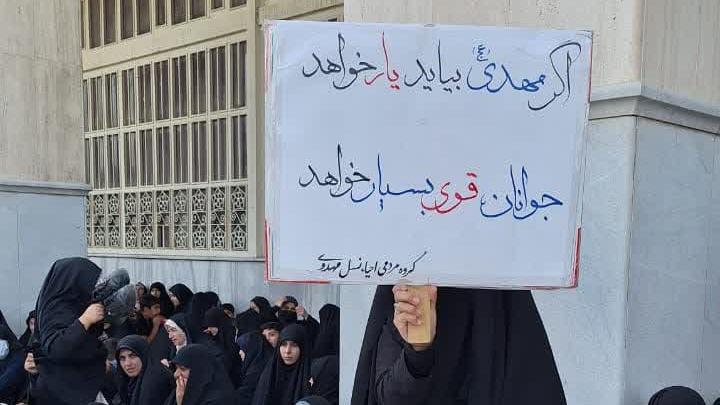 اگر مهدی (عج) بیاید یار خواهد
جوانان قوی بسیار خواهد
گروه مردمی احیاء نسل مهدوی